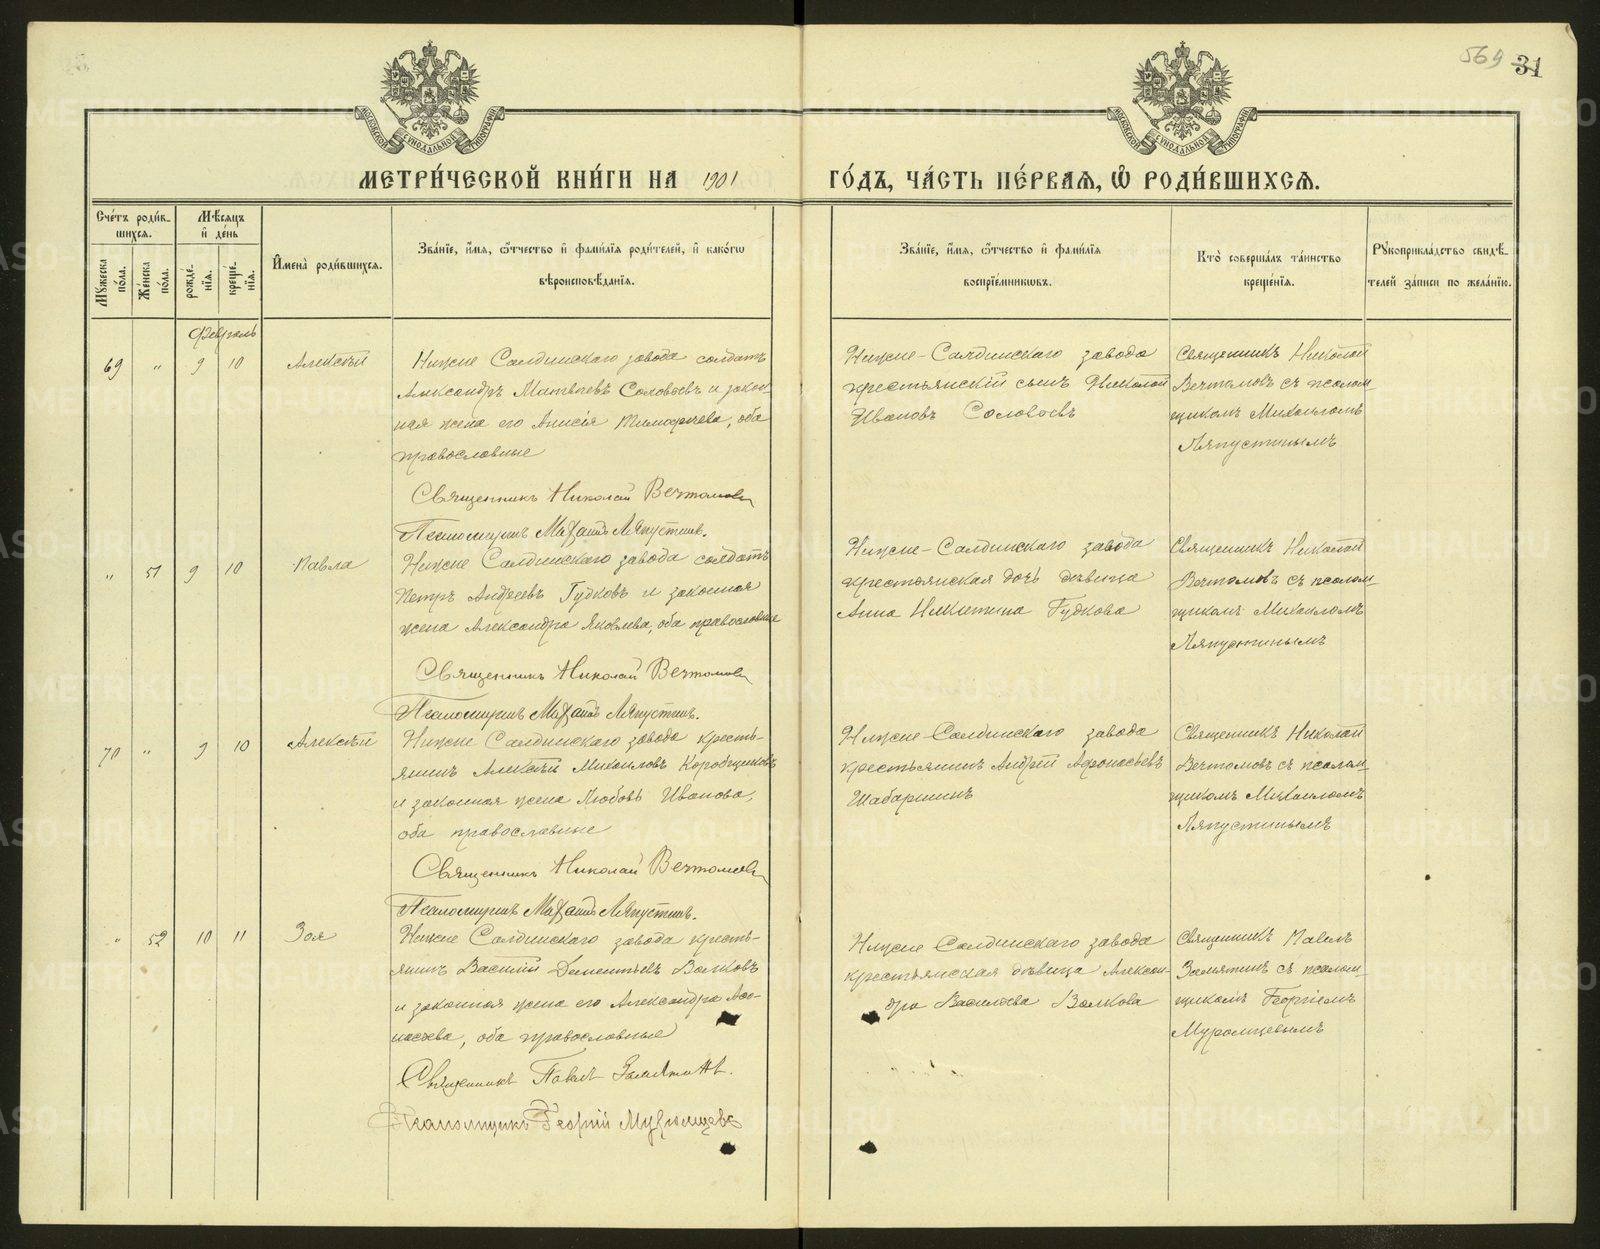 569 31
МОСКОВСКОЙ СѴНОДАЛЬНОЙ ТИПОГРАФІИ
МОСКОВСКОЙ СѴНОДАЛЬНОЙ ТИПОГРАФІИ
МЕТРИ́ЧЕСКОЙ КНИ́ГИ НА 1901 ГО́ДЪ, ЧА́СТЬ ПЕ́РВАѦ, Ѽ РОДИ́ВШИХСѦ.
Сче́тъ роди́в-
шихсѧ.
Мꙋ́жеска по́ла.
Же́нска по́ла.
Мѣ́сѧцъ
и҆ де́нь
рожде́-
нїѧ.
креще́-
нїѧ.
И҆мена̀ роди́вшихсѧ.
Зва́нїе, и҆́мѧ, ѻ҆́тчество и҆ фами́лїѧ роди́телей, и҆ како́гѡ
вѣроисповѣ́данїѧ.
Зва́нїе, и҆́мѧ, ѻ҆́тчество и҆ фами́лїѧ
воспрїе́мникѡвъ.
Кто̀ соверша́лъ та́инство
креще́нїѧ.
Рꙋкоприкла́дство свидѣ́-
телей за́писи по жела́нїю.
Февраль
69 „ 9 10 Алексѣй
Нижне Салдинскаго завода солдатъ
Александръ Матвѣевъ Соловьевъ и закон-
ная жена его Анисія Тимофеева, оба
православные
Священникъ Николай Вечтомовъ
Псаломщикъ Михаилъ Ляпустинъ.
Нижне-Салдинскаго завода
крестьянскій сынъ Николай
Ивановъ Соловьевъ
Священникъ Николай
Вечтомовъ съ псалом-
щикомъ Михаиломъ
Ляпустинымъ
„ 51 9 10 Павла
Нижне Салдинскаго завода солдатъ
Петръ Андреевъ Гудковъ и законная
жена Александра Яковлева, оба православные
Священникъ Николай Вечтомовъ
Псаломщикъ Михаилъ Ляпустинъ.
Нижне-Салдинскаго завода
крестьянская дочь дѣвица
Анна Никитина Гудкова
Священникъ Николай
Вечтомовъ съ псалом-
щикомъ Михаиломъ
Ляпустинымъ
70 „ 9 10 Алексѣй
Нижне Салдинскаго завода кресть-
янинъ Алексѣй Михаиловъ Коробщиковъ
и законная жена Любовь Иванова,
оба православные
Священникъ Николай Вечтомовъ
Псаломщикъ Михаилъ Ляпустинъ.
Нижне-Салдинскаго завода
крестьянинъ Андрей Афонасьевъ
Шабаршинъ
Священникъ Николай
Вечтомовъ съ псалом-
щикомъ Михаиломъ
Ляпустинымъ
„ 52 10 11 Зоя
Нижне Салдинскаго завода кресть-
янинъ Василій Дементьевъ Волковъ
и законная жена его Александра Афо-
насьева, оба православные
Священникъ Павелъ Замятинъ.
Псаломщикъ Георгій Муромцевъ
Нижне Салдинскаго завода
крестьянская дѣвица Алексан-
дра Васильева Волкова
Священникъ Павелъ
Замятинъ съ псалом-
щикомъ Георгіемъ
Муромцевымъ
METRIKI.GASO-URAL.RU